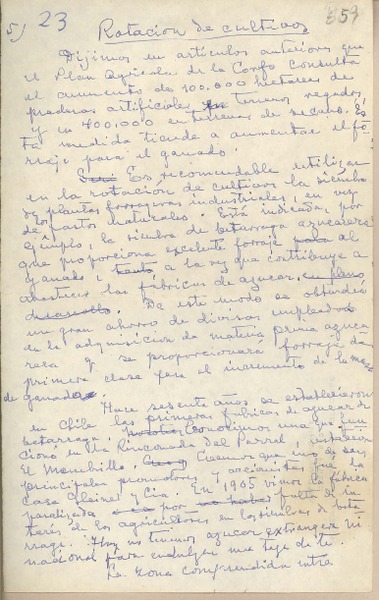 5) 23 859
Rotacion de cultivos
Dijimos en artículos anteriores que
el Plan Agrícola de la Corfo consulta
el aumento de 100.000 hectáreas de
praderas artificiales terrenos regados,
y en 400.000 en terrenos de secano. Es-
ta medida tiende a aumentar el fo-
rraje para el ganado.
Es recomendable utilizar
en la rotación de cultivos la siembra
de plantas forrajeras industriales, en vez
de pastos naturales. Está indicada, por
ejemplo, la siembra de betarraga azucarera
que proporciona excelente forraje al
ganado y a la vez que contribuye a
abastecer las fábricas de azucar,
De este modo se obtendrá
un gran ahorro de divisas empleadas
en la adquisición de materia prima azuca
rera y se proporcionará forraje de
primera clase para el incremento de la masa
de ganado.
Hace sesenta años se establecieron
en Chile las primeras fábricas de azucar de
betarraga. Conocimos una que fun
cionó en la Rinconada del Parral,
El Membrillo. Creemos que uno de sus
principales promotores y accionistas fue la
Casa y Cia. En 1905 vimos la fábrica
paralizada por falta de in
terés de los agricultores en las siembras de beta
rraga. Hoy no tenemos azucar extranjera ni
nacional para endulzar una taza de té.
La zona comprendida entre